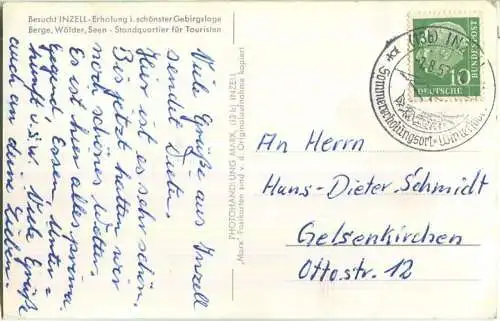 Besucht INZELL - Erholung i. schönster Gebirgslage
Berge, Wälder, Seen - Standquartier für Touristen
Viele Grüße aus Inzell
sendet Dieter.
Hier ist es sehr schön.
Bis jetzt hatten wir
noch schönes Wetter.
Es ist hier alles prima.
Gegend, Essen, Unter=
kunft u.s.w. Viele Grüße
auch an deine Lieben.
PHOTOHANDLUNG MARX, (13 b) INZELL
"Marx" Postkarten sind v. d. Originalaufnahme kopiert
(13b) INZELL
Sommererholungsort - Wintersport
DEUTSCHE
BUNDESPOST
10
An Herrn
Hans-Dieter Schmidt
Gelsenkirchen
Ottostr. 12